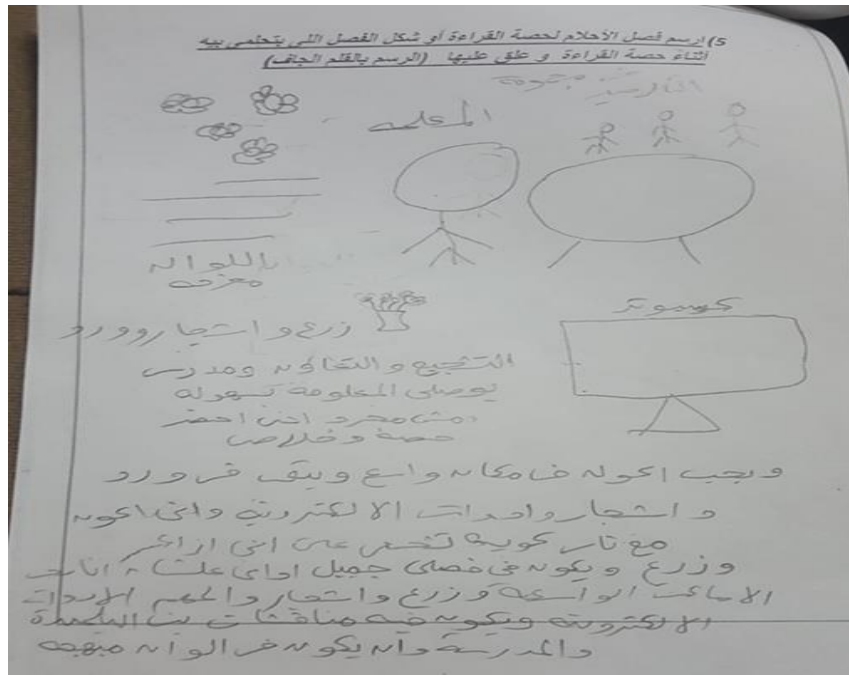 5) إرسم فصل الأحلام لحصة القراءة أو شكل الفصل اللى بتحلمى بيه
أثناء حصة القراءة و علق عليها (الرسم بالقلم الجاف)
المعلمه
باللوانه
مفرحه
كمبيوتر
زرع و اشجار وورد
التشجيع والتعاون ومدرس
يوصلى المعلومة بسهوله
مش مجرد انى احضر
حصة وخلاص
ويجب اكونه فى مكانه واسع ويبقى فى ورد
و اشجار وادوات الالكترونية وانى اكونه
مع ناس كويسه تشجعنى على انى اذاكر
وزرع ويكونه فى فصلى جميل
الاماكن الواسعه وزرع واشجار والمهم الادوات
الالكترونية ويكونه فيه مناقشات بين التلميذة
والمدرسة وأنه يكونه فى الوانه مبهجه